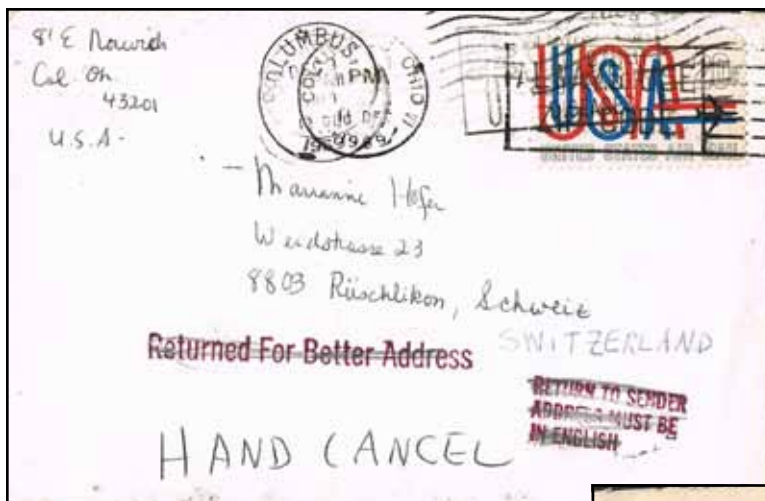 81 E Norwich
Col Oh.
43201
U.S.A.
COLUMBUS
OHIO
PM
USA
UNITED STATES AIR MAIL
Marianne Hofer
Weidstrasse 23
8803 Rüschlikon, Schweiz
SWITZERLAND
Returned For Better Address
RETURN TO SENDER
ADDRESS MUST BE
IN ENGLISH
HAND CANCEL